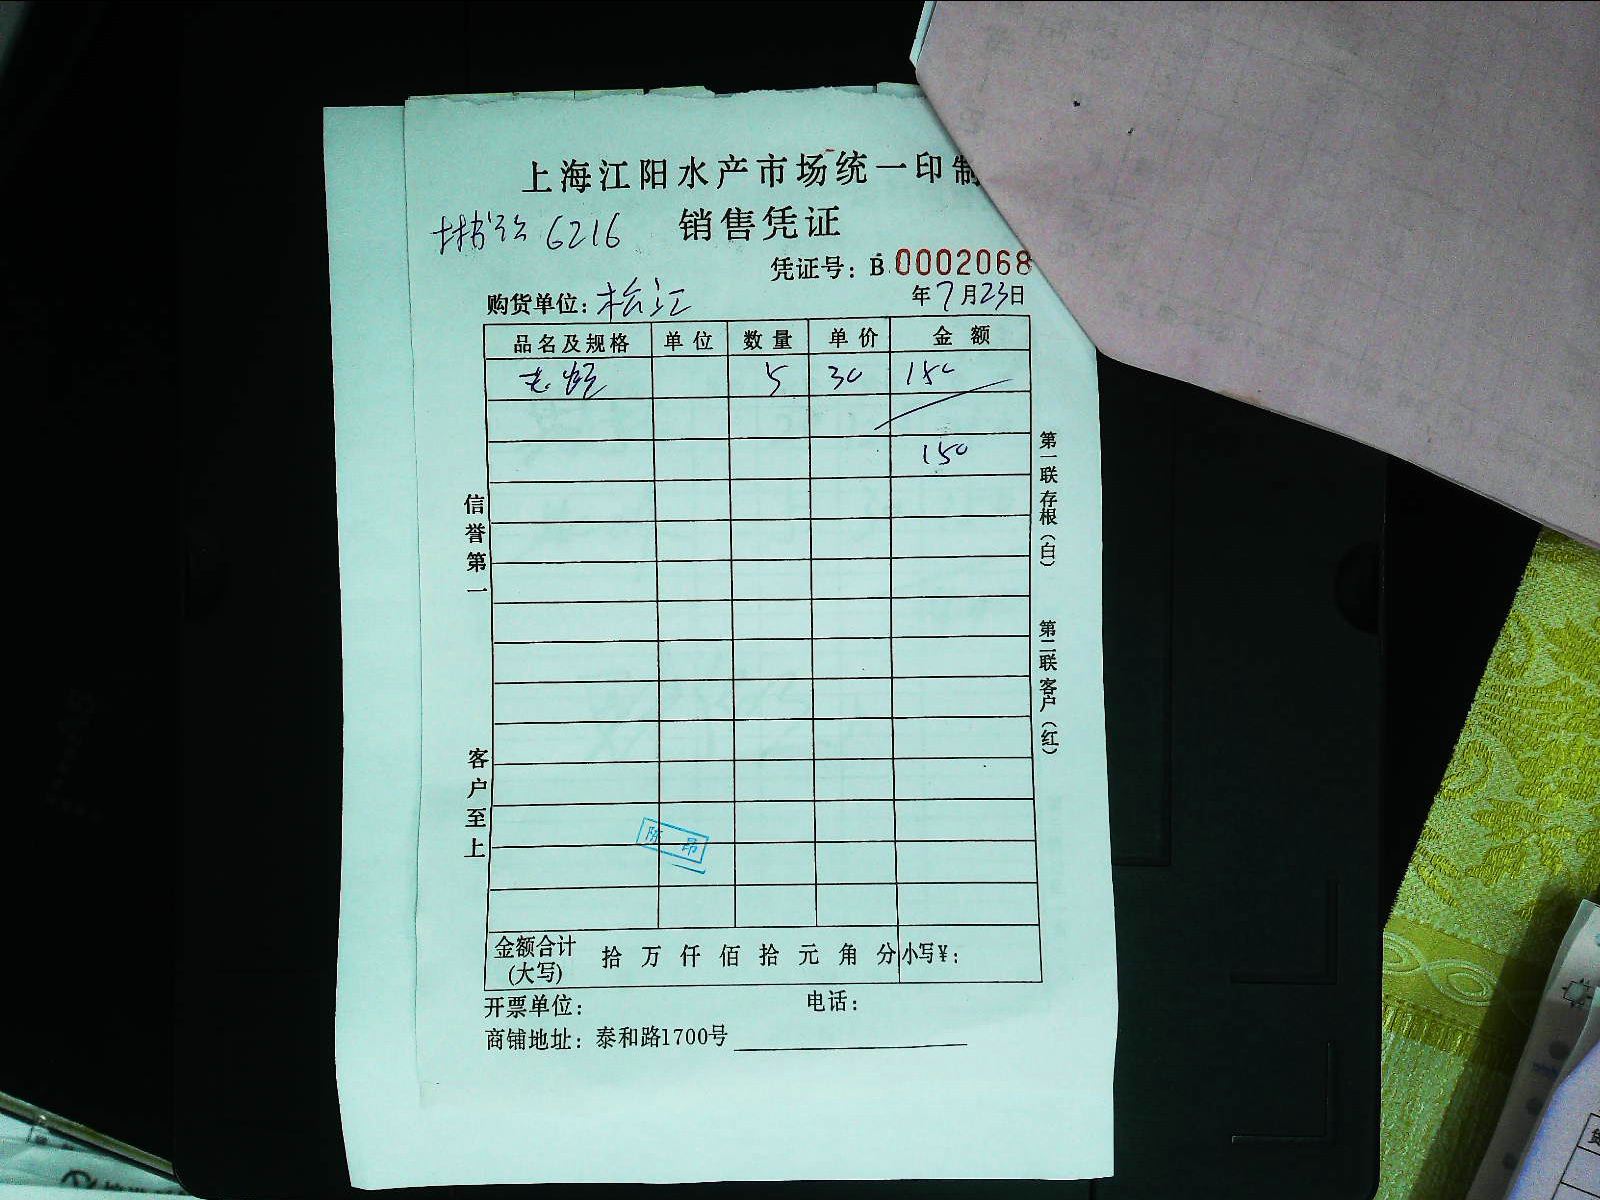 上海江阳水产市场统一印制
6216 销售凭证
凭证号：B 0002068
购货单位：松江 年7月23日
品名及规格 单位 数量 单价 金额
5 30 150
150
信誉第一
客户至上
第一联存根（白）
第二联客户（红）
陈昂
金额合计(大写) 拾万仟佰拾元角分 小写¥：
开票单位： 电话：
商铺地址：泰和路1700号